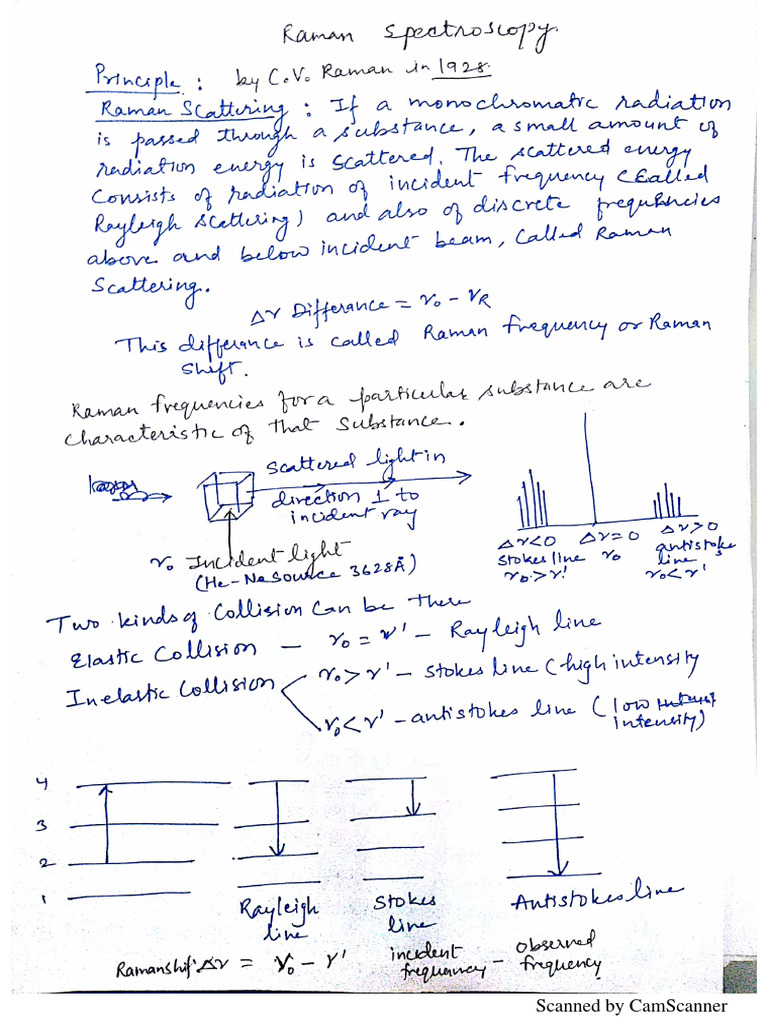 Raman Spectroscopy.
Principle : by C.V. Raman in 1928.
Raman Scattering : If a monochromatic radiation
is passed through a substance, a small amount of
radiation energy is scattered. The scattered energy
Consists of radiation of incident frequency (Called
Rayleigh Scattering) and also of discrete frequencies
above and below incident beam, Called Raman
Scattering.
Δν Differance = ν₀ - νR
This differance is called Raman frequency or Raman
Shift.
Raman frequencies for a particular substance are
characteristic of that Substance.
scattered light in
direction ⊥ to
incident ray
ν₀ Incident light
(He-Ne Source 3628Å)
Δν<0 Δν=0 Δν>0
stokes line ν₀ antistoke's
line
ν₀>ν' ν₀<ν'
Two kinds of Collision Can be there
Elastic Collision - ν₀ = ν' - Rayleigh line
Inelastic Collision
ν₀>ν' - stokes line (high intensity
ν₀<ν' - antistokes line (low
intensity)
4
3
2
1
Rayleigh
line
Stokes
line
Antistokes line
Ramanshift Δν = ν₀ - ν' incident
frequancy - observed
frequency
Scanned by CamScanner